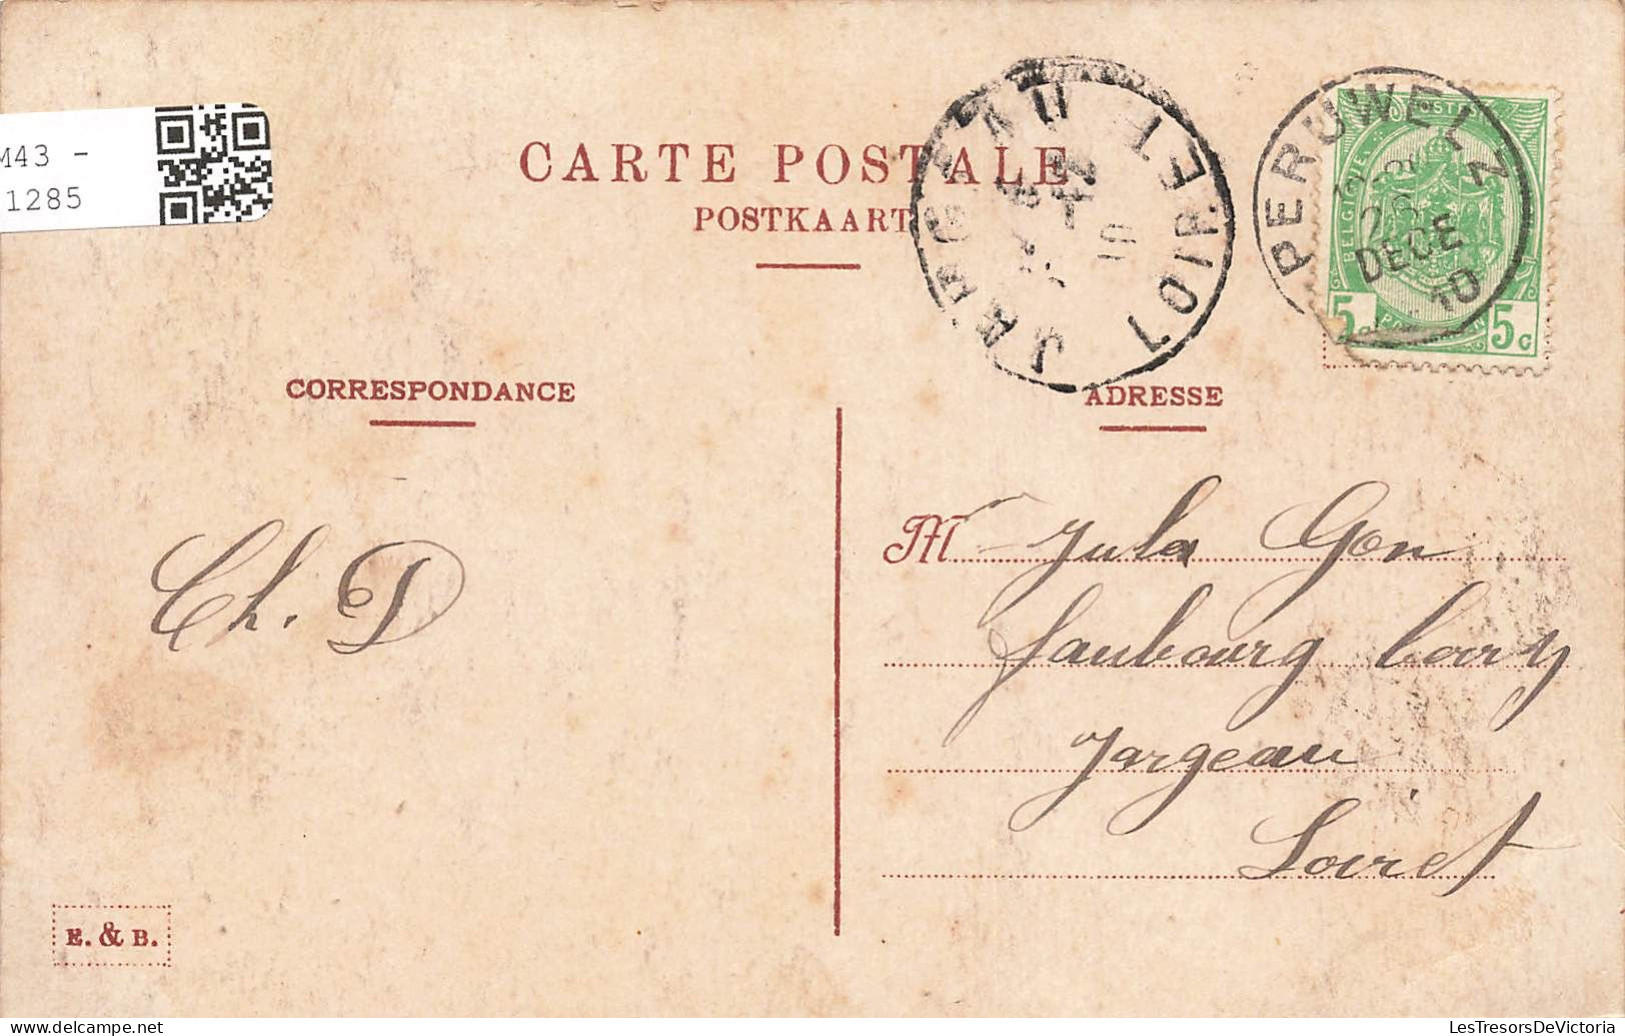 M43 -
1285
CARTE POSTALE
POSTKAART
JARGEAU
LOIRET
PERUWELZ
28
DECE
10
BELGIQUE
POSTES
5c 5c
CORRESPONDANCE
ADRESSE
Ch. D
M Jula Gon
faubourg
Jargeau
Loiret
E. & B.
LesTresorsDeVictoria
delcampe.net